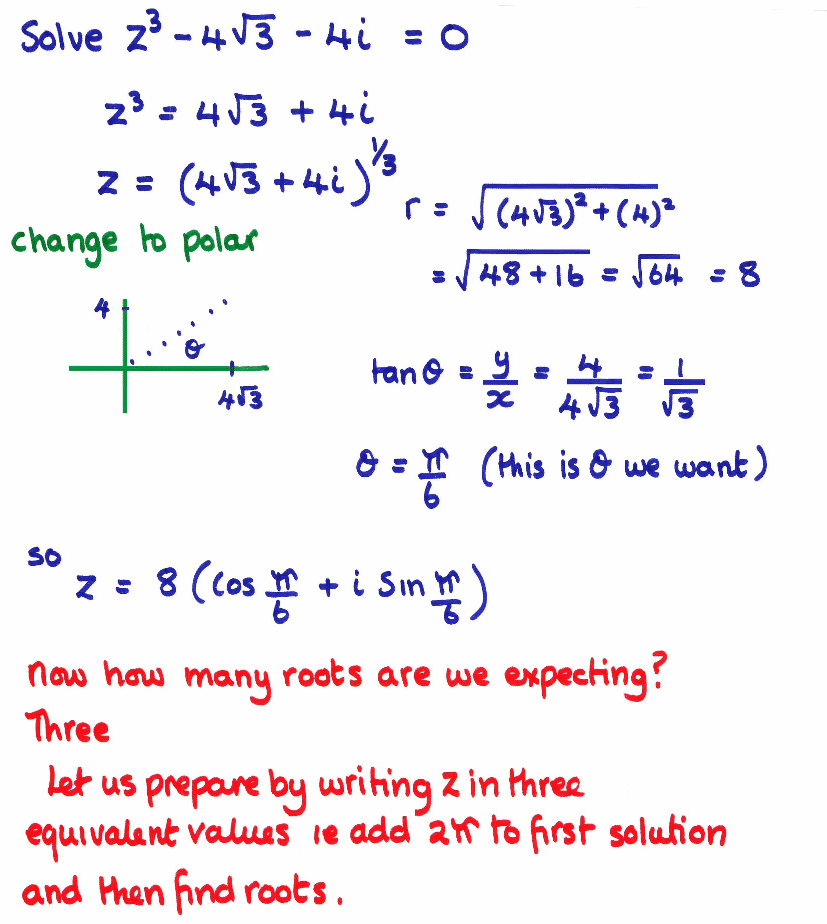 Solve z³ - 4√3 - 4i = 0
z³ = 4√3 + 4i
z = (4√3 + 4i)^1/3
change to polar
r = √(4√3)² + (4)²
= √48 + 16 = √64 = 8
4
θ
4√3
tan θ = y/x = 4/4√3 = 1/√3
θ = π/6 (this is θ we want)
so
z = 8 (cos π/6 + i sin π/6)
Now how many roots are we expecting?
Three
Let us prepare by writing z in three
equivalent values ie add 2π to first solution
and then find roots.